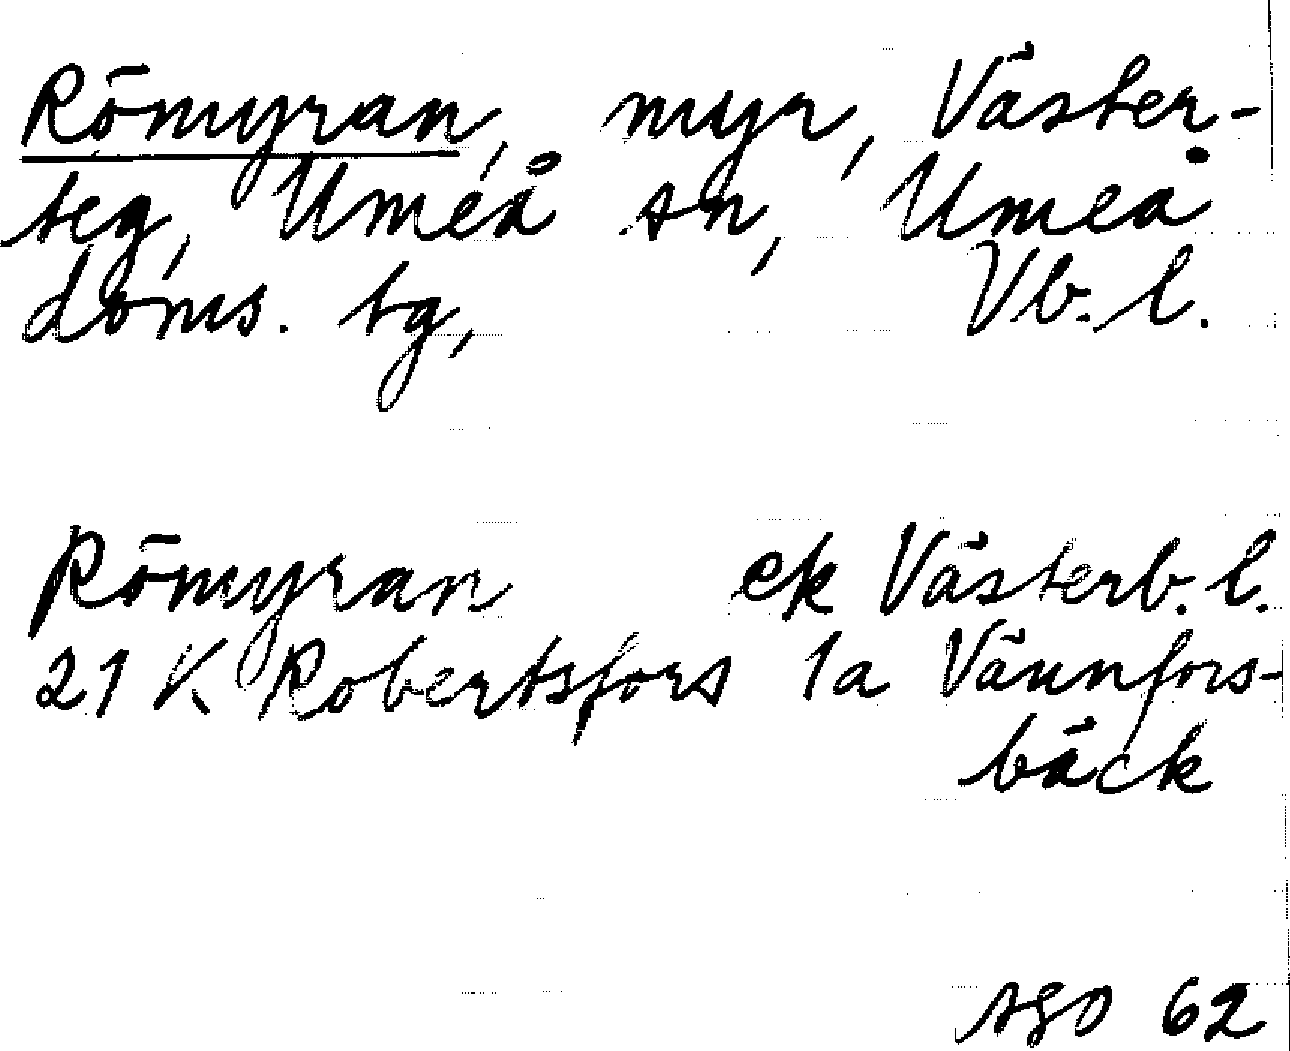 Römyran, myr, Väster-
teg, Umeå sn, Umeå
doms. tg, Vb. l.
Römyran ek Västerb. l.
21 K Robertsfors 1a Vännfors-
bäck
SGO 62